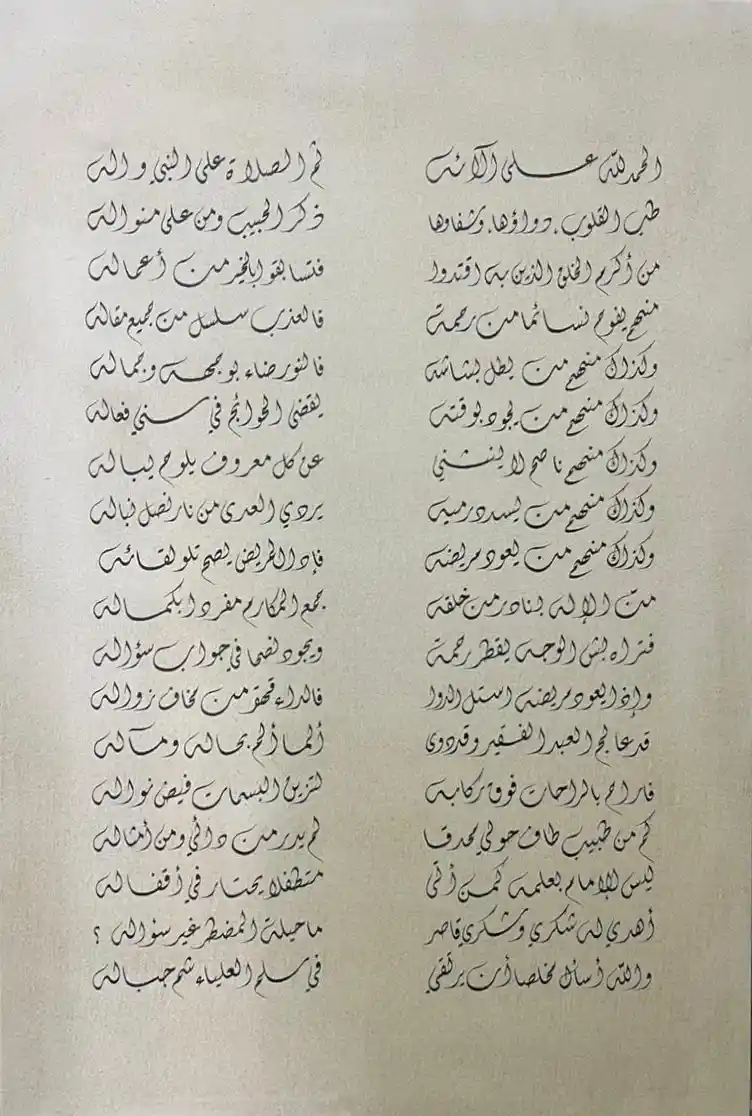 الحمد لله على آلائه ثم الصلاة على النبي واله
طب القلوب . دواؤها . وشفاوها ذكر الحبيب ومن على منواله
من أكرم الخلق الذين به اقتدوا فتسابقوا بالخير من أعماله
منهج يفوح نسائما من رحمة فالعذب سلسل من جميع مقاله
وكذاك منهج من يطل بشاشة فالنور ضاء بوجهه وجماله
وكذاك منهج من يجود بوقته يقضي الحوائج في سني فعاله
وكذاك منهج ناصح لا ينثني عن كل معروف يلوح لباله
وكذاك منهج من يسدد رميه يردي العدى من نار نصل نباله
وكذاك منهج من يعود مريضه فإذا المريض يصح تلو لقائه
من الإله بنادر من خلقه جمع المكارم مفردا بكماله
فتراه بش الوجه يقطر رحمة ويجود نصحا في جواب سؤاله
وإذا يعود مريضه استل الدوا فالداء قهقر من مخاف نزواله
قد عالج العبد الفقير وقد دوى ألما ألم بحاله ومآله
فاراح بالراحات فوق ركابه لتزين البسمات فيض نواله
كم من طبيب طاف حولي يحدقا لم يدر من دائي ومن أمثاله
ليس الإمام بعلمه كمن أتى متطفلا يحتار في أقفاله
أهدي له شكري وشكري قاصر ما حيلة المضطر غير سؤاله ؟
والله أسأل مخلصا أن يرتقي في سلم العلياء شم جباله